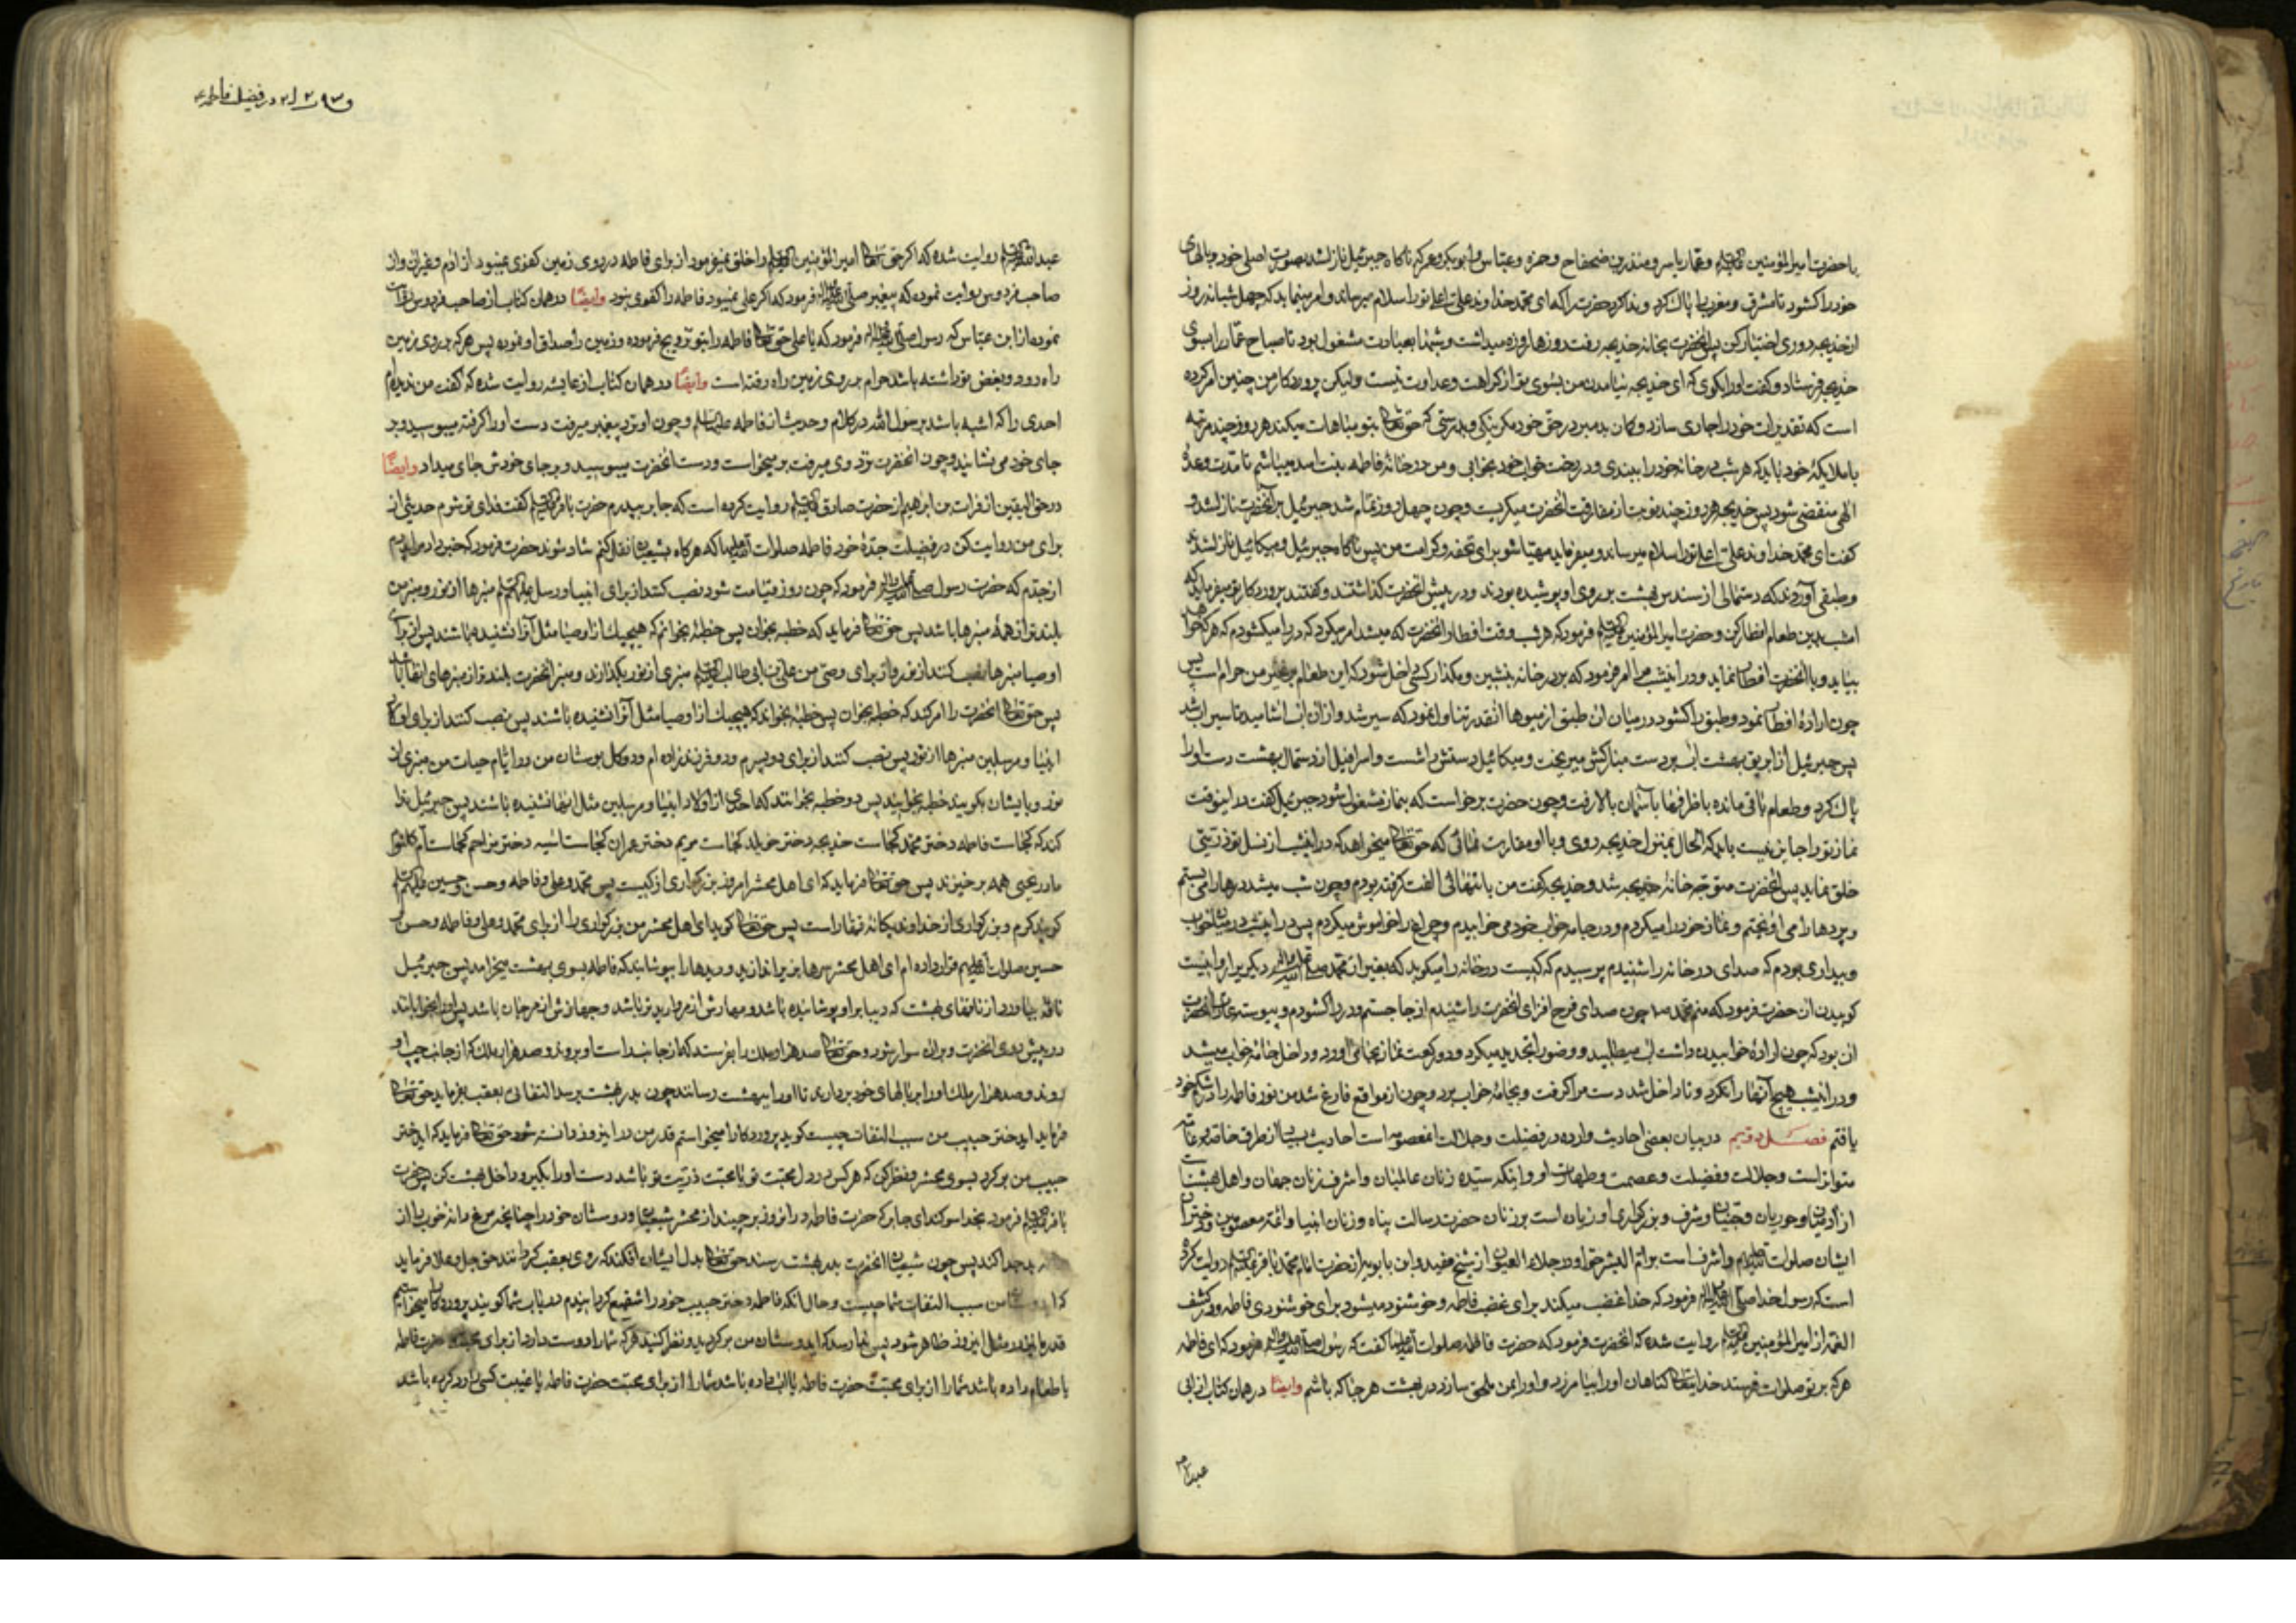 با حضرت امیرالمؤمنین علیه السلام و عمار یاسر و منذر بن ضحضاح و حمزه و عباس و ابوبکر و عمر که ناگاه جبرئیل نازل شد بصورت اصلی خود و بالهای
خود را کشود تا مشرق و مغرب را پر کرد و ندا کرد حضرت را که ای محمد خداوند علی اعلی تو را سلام میرساند و امر مینماید که چهل شبانه روز
از خدیجه دوری اختیار کن پس آنحضرت بخانه خدیجه نرفت روزها روزه میداشت و شبها بعبادت مشغول بود تا صباح عمار را بسوی
خدیجه فرستاد و گفت او را بگوی که ای خدیجه نیامدن من بسوی تو از کراهت و عداوت نیست ولیکن پروردکار من چنین امر کرده
است که تقدیرات خود را جاری سازد و کمان بد مبر در حق خود مکر نیکی و بدرستی که حق تعالی بتو مباهات میکند هر روز چند مرتبه
با ملایکهٔ خود باید که هر شب در خانه خود را ببندی و در رخت خواب خود بخوابی و من در خانهٔ فاطمه بنت اسد میباشم تا مدت وعدهٔ
الهی منقضی شود پس خدیجه هر روز چند نوبت از مفارقت آنحضرت میکریست و چون چهل روز تمام شد جبرئیل بر آنحضرت نازل شد و
کفت ای محمد خداوند علی اعلی تو را سلام میرساند و میفرماید مهیا شو برای تحفه و کرامت من پس ناکاه جبرئیل و میکائیل نازل شد
و طبقی آوردند که دستمالی از سندس بهشت بر روی او پوشیده بودند و در پیش آنحضرت کذاشتند و کفتند پروردکار تو میفرماید که
امشب بدین طعام افطار کن و حضرت امیرالمؤمنین علیه السلام فرمود که هر شب وقت افطار آنحضرت که میشد امر میکرد که در را میکشودم که هر که خواهد
بیاید و با آنحضرت افطار نماید و در این شب مرا امر فرمود که بر در خانه بنشین و مگذار کسی داخل شود که این طعام بر غیر من حرام است پس
چون ارادهٔ افطار نمود و طبق را کشود در میان آن طبق از میوها آنقدر تناول نمود که سیر شد و از آن آب آشامید تا سیراب شد
پس جبرئیل از ابریق بهشت آب بر دست مبارکش میریخت و میکائیل دستش را شست و اسرافیل از دستمال بهشت دست او را
پاک کرد و طعام باقی مانده با ظرفها باسمان بالا رفت و چون حضرت برخواست که بنماز مشغول شود جبرئیل کفت در اینوقت
نماز تو را جایز نیست باید که الحال بمنزل خدیجه روی و با او مقاربت نمائی که حق تعالی میخواهد که در این شب از نسل تو ذریتی
خلق نماید پس آنحضرت متوجه خانهٔ خدیجه شد و خدیجه کفت من با تنهائی الفت گرفته بودم و چون شب میشد درها را می بستم
و پردها را می آویختم و نماز خود را میکردم و در جامه خواب خود می خوابیدم و چراغ را خواموش میکردم پس در این شب در میان خواب
و بیداری بودم که صدای در خانه را شنیدم پرسیدم که کیست در خانه را میکوبد که بغیر از محمد صلی الله علیه و آله دیگری را روا نیست
کوبیدن آن حضرت فرمود که منم محمد چون صدای فرح افزای آنحضرت را شنیدم از جا جستم و در را کشودم و پیوسته عادت آنحضرت
آن بود که چون ارادهٔ خوابیدن داشت آب میطلبید و وضو را تجدید میکرد و دو رکعت نماز بجا می آورد و داخل جامهٔ خواب میشد
و در این شب هیچ آنها را نکرد و تا داخل شد دست مرا کرفت و بجامهٔ خواب برد و چون از مواقع فارغ شد من نور فاطمه را در شکم خود
یافتم فصل دویم در بیان بعضی احادیث وارده در فضیلت و جلالت آنمعصومه است احادیث بسیار از طرق خاصه و عامه
متواتر است و جلالت و فضیلت و عصمت و طهارت او و اینکه سیده زنان عالمیان و اشرف زنان جهان و اهل بهشت
از آدمیان و حوریان و جنیان و شرف و بزرکواری او زیاده است بر زنان حضرت رسالت پناه و زنان انبیا و ائمه معصومین و دختران
ایشان صلوات الله علیهم و اشرف است بر ام البشر حوا و در جلاء العیون از شیخ مفید و ابن بابویه از حضرت امام محمد باقر علیه السلام روایت کرده
است که رسول خدا صلی الله علیه و آله فرمود که خدا غضب میکند برای غضب فاطمه و خوشنود میشود برای خوشنودی فاطمه و در کشف
الغمه از امیرالمؤمنین علیه السلام روایت شده که آنحضرت فرمود که حضرت فاطمه صلوات الله علیها کفت که رسول صلی الله علیه و آله فرمود که ای فاطمه
هر که بر تو صلوات فرستد خدایتعالی کناهان او را بیامرزد و او را بمن ملحق سازد در بهشت هر جا که باشم وایضا در همان کتاب از ابی
عبدالله
در فضیلت فاطمه ع
عبدالله علیه السلام روایت شده که اکر حق تعالی امیرالمؤمنین علیه السلام را خلق نمیفرمود از برای فاطمه در روی زمین کفوی نمیبود از آدم و غیر آن و از
صاحب فردوس روایت نموده که پیغمبر صلی الله علیه و آله فرمود که اکر علی نمیبود فاطمه را کفوی نبود وایضا در همان کتاب از صاحب فردوس روایت
نموده از ابن عباس که رسول صلی الله علیه و آله فرمود که یا علی حق تعالی فاطمه را بتو تزویج فرموده و زمین را صداق او نموده پس هر که بر روی زمین
راه رود و بغض تو داشته باشد حرام بر روی زمین راه رفته است وایضا در همان کتاب از عایشه روایت شده که گفت من ندیدم
احدی را که اشبه باشد برسول الله در کلام و حدیث از فاطمه علیها السلام و چون او نزد پیغمبر میرفت دست او را کرفته میبوسید و بر
جای خود می نشانید و چون آنحضرت نزد وی میرفت برمیخواست و دست آنحضرت میبوسید و بر جای خودش جای میداد وایضا
در حق الیقین از فرات بن ابراهیم از حضرت صادق علیه السلام روایت کرده است که جابر بپدرم حضرت باقر علیه السلام کفت فدای تو شوم حدیثی از
برای من روایت کن در فضیلت جدهٔ خود فاطمه صلوات الله علیها که هرکاه بشیعیان نقل کنم شاد شوند حضرت فرمود که خبر داد مرا پدرم
از جدم که حضرت رسول صلی الله علیه و آله فرمود که چون روز قیامت شود نصب کنند از برای انبیا و رسل علیهم السلام منبرها از نور و منبر من
بلندتر از همهٔ منبرها باشد پس حق تعالی فرماید که خطبه بخوان پس خطبهٔ بخوانم که هیچیک از اوصیا مثل آنرا نشنیده باشند پس از برای
اوصیا منبرها نصب کنند از نور و از برای وصی من علی بن ابی طالب علیه السلام منبری از نور بکذارند و منبر آنحضرت بلندتر از منبرهای آنها باشد
پس حق تعالی آنحضرت را امر کند که خطبه بخوان پس خطبهٔ بخواند که هیچیک از اوصیا مثل آنرا نشنیده باشند پس نصب کنند از برای اولاد
انبیا و مرسلین منبرها از نور پس نصب کنند از برای دو پسرم و دو فرزند زاده ام و دو گل بوستان من در ایام حیات من منبری از
نور و بایشان بکویند خطبه بخوانید پس دو خطبه بخوانند که احدی از اولاد انبیا و مرسلین مثل آنها نشنیده باشند پس جبرئیل ندا
کند که کجاست فاطمه دختر محمد کجاست خدیجه دختر خویلد کجاست مریم دختر عمران کجاست آسیه دختر مزاحم کجاست ام کلثوم
مادر یحیی همه برخیزند پس حق تعالی فرماید که ای اهل محشر امروز بزرکواری از کیست پس محمد و علی و فاطمه و حسن و حسین علیهم السلام
کویند کرم و بزرکواری از خداوند یکانهٔ قهار است پس حق تعالی کوید ای اهل محشر من بزرکواری را از برای محمد و علی و فاطمه و حسن و
حسین صلوات الله علیهم قرار داده ام ای اهل محشر سرها بزیر اندازید و دیدها را بپوشانید که فاطمه بسوی بهشت میخرامد پس جبرئیل
ناقهٔ بیاورد از ناقهای بهشت که دیبا بر او پوشانیده باشد و مهارش از مروارید تر باشد و جهازش از مرجان باشد پس او را بخوابانند
در پیش روی آنحضرت و بر آن سوار شود و حق تعالی صد هزار ملک را بفرستد که از جانب راست او بروند و صد هزار ملک که از جانب چپ او
روند و صد هزار ملک او را بر بالهای خود بردارند تا او را ببهشت رسانند چون بدر بهشت برسد التفاتی بعقب بفرماید حق تعالی
فرماید ای دختر حبیب من سبب التفات چیست کوید پروردکارا میخواستم قدر من در این روز دانسته شود حق تعالی فرماید که ای دختر
حبیب من برکرد بسوی محشر و نظر کن که هر کس در دل محبت تو یا محبت ذریت تو باشد دست او را بکیر و داخل بهشت کن پس حضرت
باقر علیه السلام فرمود بخدا سوکند ای جابر که حضرت فاطمه در آنروز برچیند از محشر شیعیان و دوستان خود را چنانچه مرغ دانهٔ خوب را از
بد جدا کند پس چون شیعیان آنحضرت بدر بهشت رسند حق تعالی بدل ایشان افکند که روی بعقب کردانند حق جل و علا فرماید
که ای دوستان من سبب التفات شما چیست و حال آنکه فاطمه دختر حبیب خود را شفیع کردانیدم در باب شما کویند پروردکارا میخواستیم
قدر ما در مثل این روز ظاهر شود پس ندا رسد که ای دوستان من برکردید و نظر کنید هر که شما را دوست دارد از برای محبت حضرت فاطمه
یا طعام داده باشد شما را از برای محبت حضرت فاطمه یا آب داده باشد شما را از برای محبت حضرت فاطمه یا غیبت کسی را رد کرده باشد